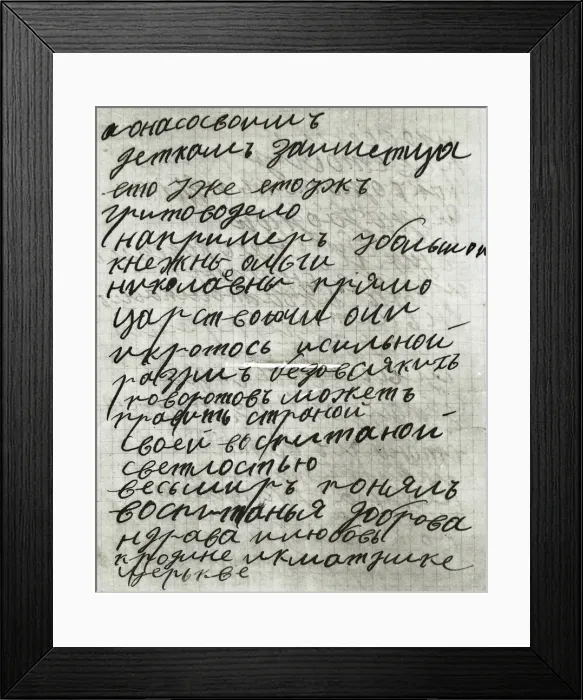 а онасосвоимъ
деткамъ занметца
ето уже етоужъ
гритоводело
например ъ убольшои
кнежны ольги
николавны прямо
царствоючи они
икротось исильной
разумъ безовсякихъ
поворотовъ можетъ
править страной
своей воспитаной
светлостью
весьмиръ понялъ
воспитанья доброва
ндрава илюбовь
кродине икматушке
церькве